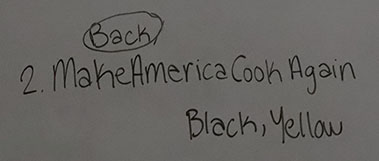 Back
2. Make America Cook Again
Black, Yellow